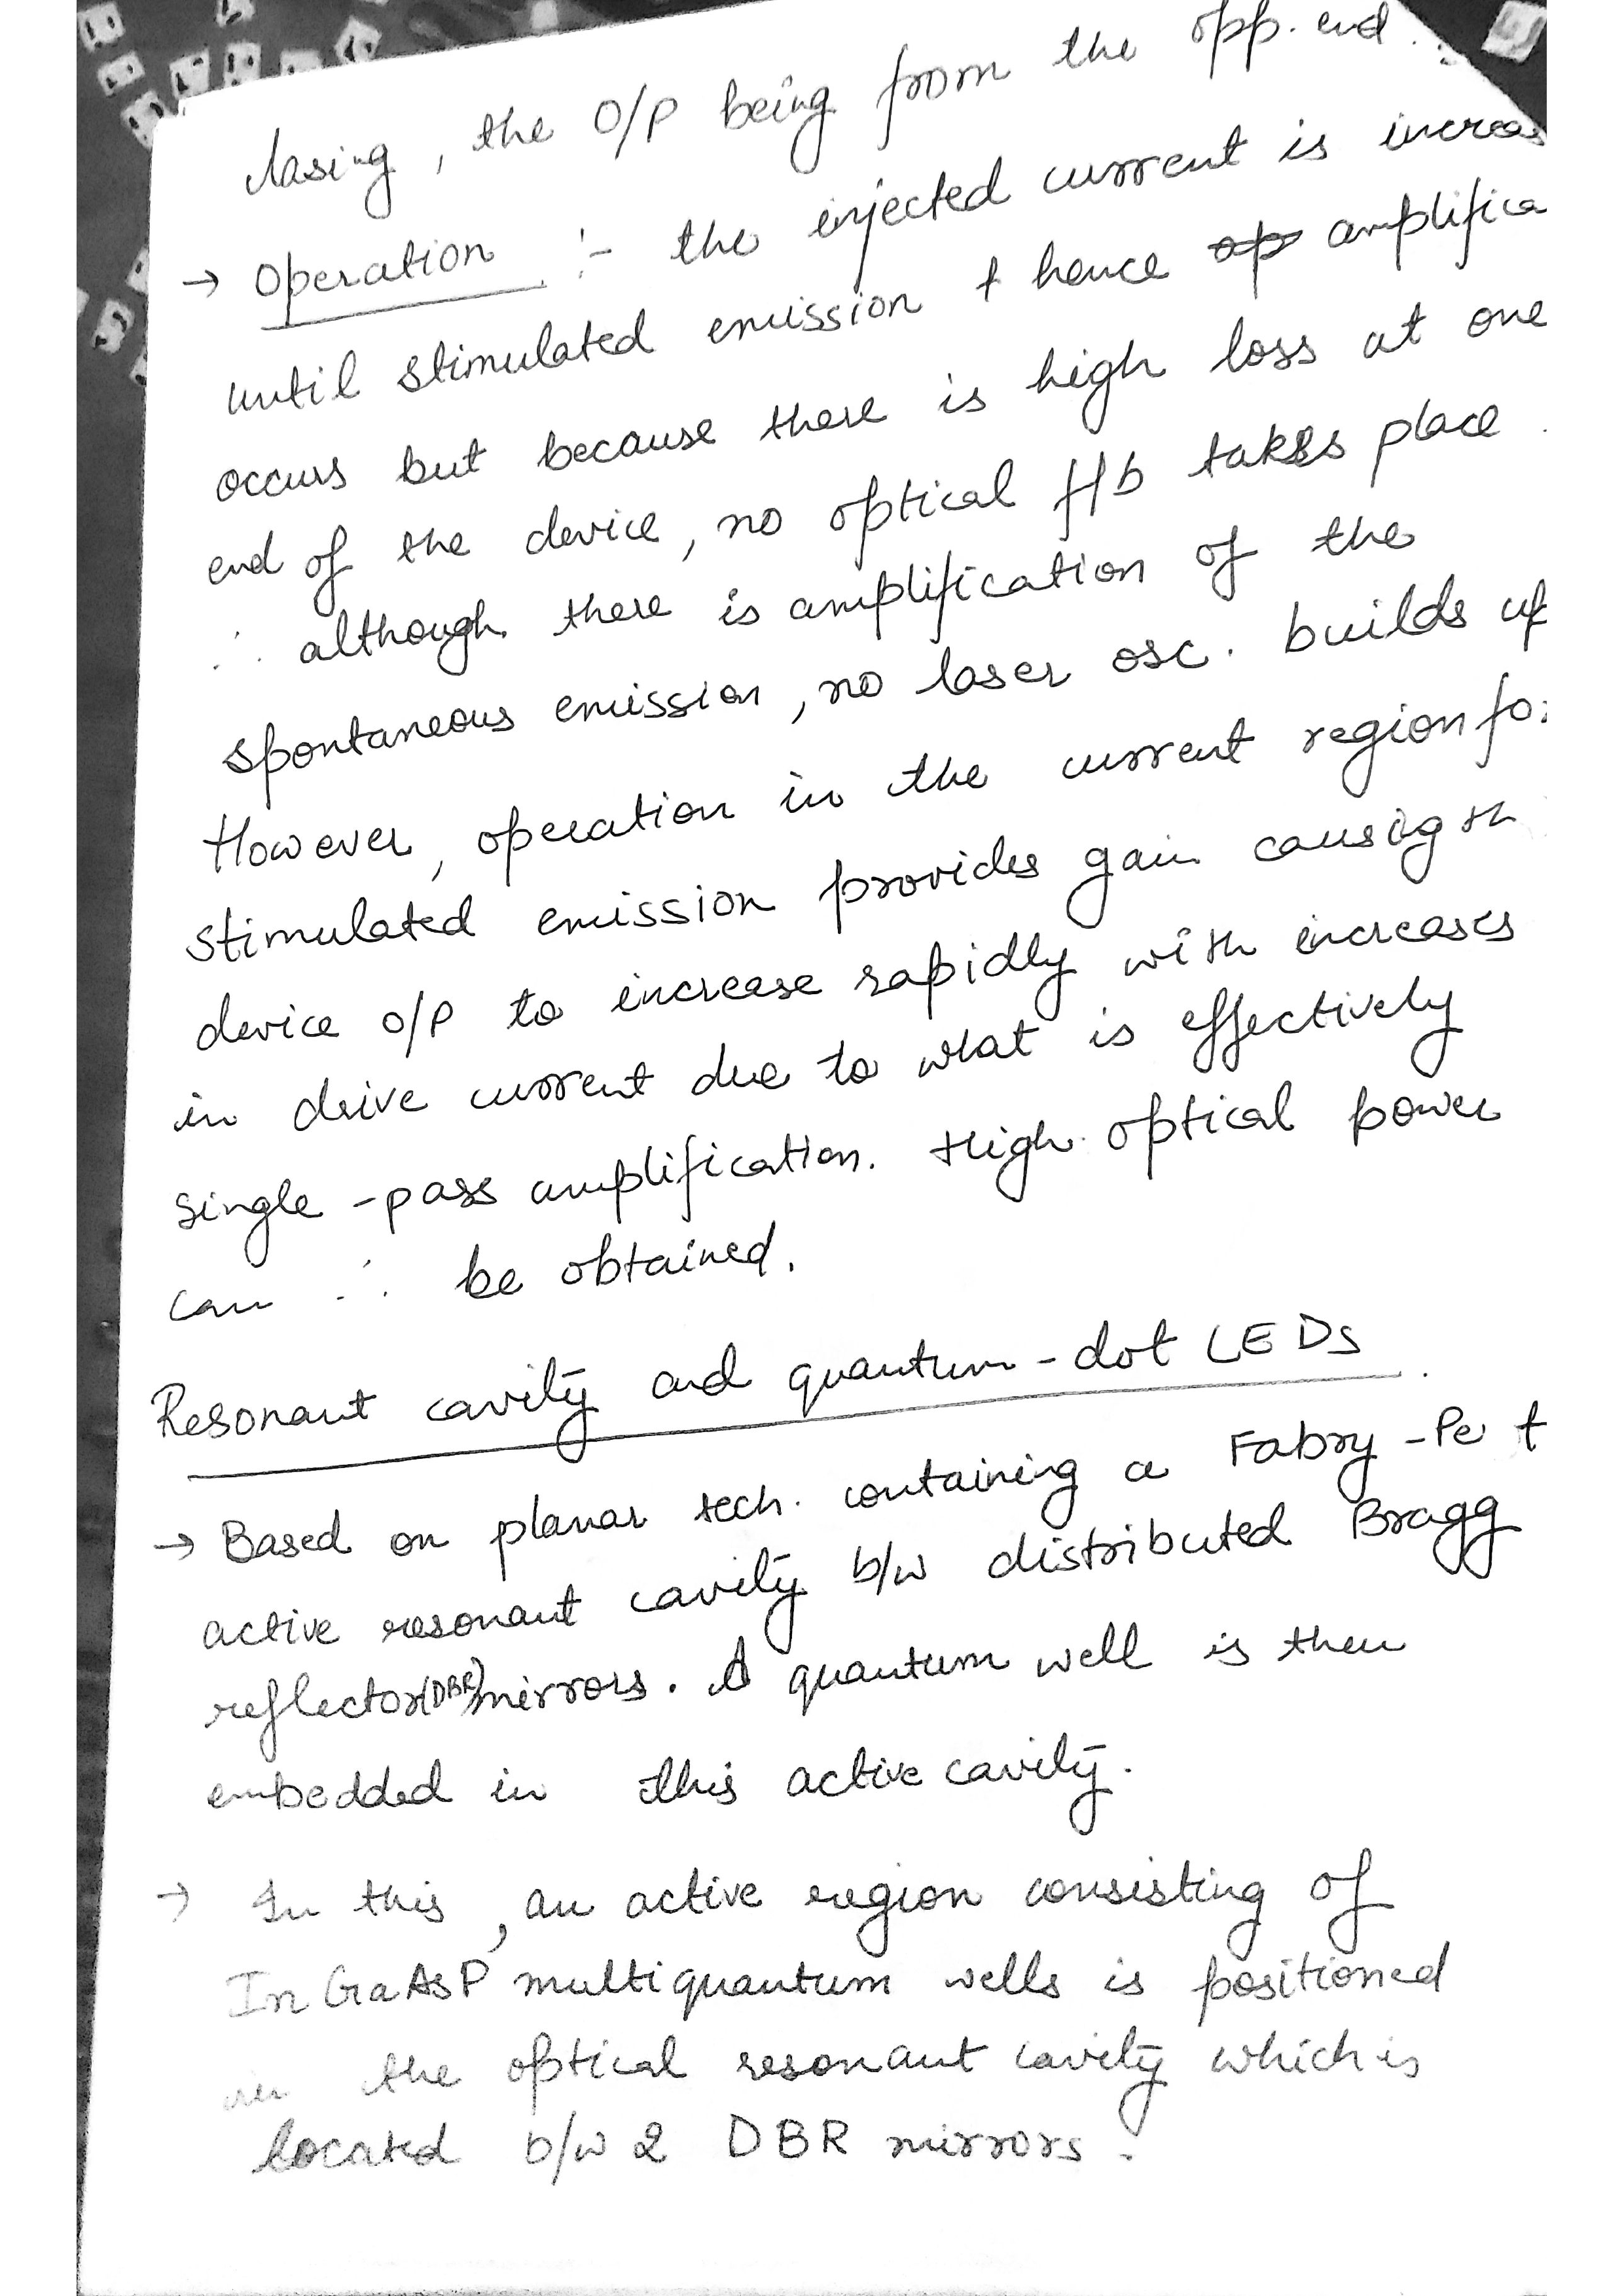 lasing, the O/P being from the opp. end.
→ Operation :- the injected current is increas
until stimulated emission & hence amplifica
occurs but because there is high loss at one
end of the device, no optical f/b takes place.
∴ although there is amplification of the
spontaneous emission, no laser osc. builds up
However, operation in the current region for
stimulated emission provides gain causing th
device O/P to increase rapidly with increases
in drive current due to what is effectively
single-pass amplification. High optical power
can ∴ be obtained.
Resonant cavity and quantum-dot LEDs.
→ Based on planar tech. containing a Fabry-Pe t
active resonant cavity b/w distributed Bragg
reflector(DBR) mirrors. A quantum well is then
embedded in this active cavity.
→ In this, an active region consisting of
InGaAsP multiquantum wells is positioned
in the optical resonant cavity which is
located b/w 2 DBR mirrors.